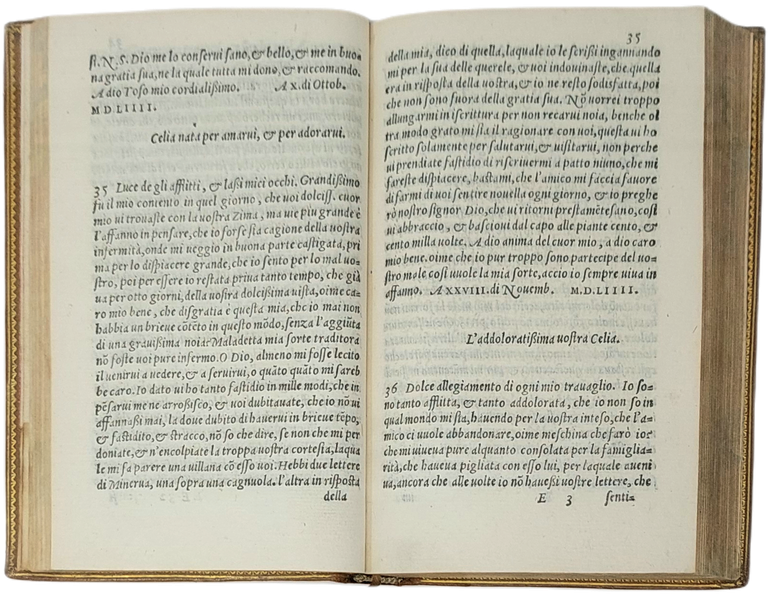 ſi. N. S. Dio me lo conſerui ſano, & bello, & me in buo⸗
na gratia ſua, ne la quale tutta mi dono, & raccomando.
A dio Toſo mio cordialißimo. A X. di Ottob.
M D L I I I I.
Celia nata per amarui, & per adorarui.
35 Luce de gli afflitti, & laßi miei occhi. Grandißimo
fu il mio contento in quel giorno, che uoi dolciſſ. cuor
mio ui trouaſte con la uoſtra Zima, ma uie più grande è
l'affanno in penſare, che io forſe ſia cagione della uoſtra
infermità, onde mi ueggio in buona parte caſtigata, pri
ma per lo diſpiacere grande, che io ſento per lo mal uo⸗
ſtro, poi per eſſere io reſtata priua tanto tempo, che già
ua per otto giorni, della uoſtra dolcißima uiſta, oime ca⸗
ro mio bene, che diſgratia è queſta mia, che io mai non
habbia un brieue cõtẽto in queſto mõdo, ſenza l'aggiũta
di una grauißima noia? Maladetta mia ſorte traditora
nõ foſte uoi pure infermo. O Dio, almeno mi foſſe lecito
il uenirui a uedere, & a ſeruirui, o quãto quãto mi ſareb
be caro. Io dato ui ho tanto faſtidio in mille modi, che in
pẽſarui me ne arroßiſco, & uoi dubitauate, che io nõ ui
affannaßi mai, la doue dubito di hauerui in brieue tẽpo,
& faſtidito, & ſtracco, nõ ſo che dire, ſe non che mi per
doniate, & n'encolpiate la troppa uoſtra corteſia, la qua
le mi fa parere una uillana cõ eſſo uoi. Hebbi due lettere
di Minerua, una ſopra una cagnuola. l'altra in riſpoſta
della
35
della mia, dico di quella, laquale io le ſcrißi ingannando
mi per la ſua delle querele, & uoi indouinaſte, che quella
era in riſpoſta della uoſtra, & io ne reſto ſodisfatta, poi
che non ſono fuora della gratia ſua. Nõ uorrei troppo
allungarmi in iſcrittura per non recarui noia, benche ol
tra modo grato mi ſia il ragionare con uoi, queſta ui ho
ſcritto ſolamente per ſalutarui, & uiſitarui, non perche
ui prendiate faſtidio di riſcriuermi a patto niuno, che mi
fareſte diſpiacere, baſtami, che l'amico mi faccia fauore
di farmi di uoi ſentire nouella ogni giorno, & io preghe
rò noſtro ſignor Dio, che ui ritorni preſtamẽte ſano, coſi
ui abbraccio, & baſcioui dal capo alle piante cento, &
cento milla uolte. A dio anima del cuor mio, a dio caro
mio bene. oime che io pur troppo ſono partecipe del uo⸗
ſtro mole coſi uuole la mia ſorte, accio io ſempre uiua in
affanno. A X X V I I I. di Nouemb. M. D. L I I I I.
L'addoloratißima uoſtra Celia.
36 Dolce allegiamento di ogni mio trauaglio. Io ſo⸗
no tanto afflitta, & tanto addolorata, che io non ſo in
qual mondo mi ſia, hauendo per la uoſtra inteſo, che l'a⸗
mico ci uuole abbandonare, oime meſchina che farò io?
che mi uiueua pure alquanto conſolata per la famiglia⸗
rità, che haueua pigliata con eſſo lui, per laquale aueni
ua, ancora che alle uolte io nõ haueßi uoſtre lettere, che
E 3 ſenti⸗